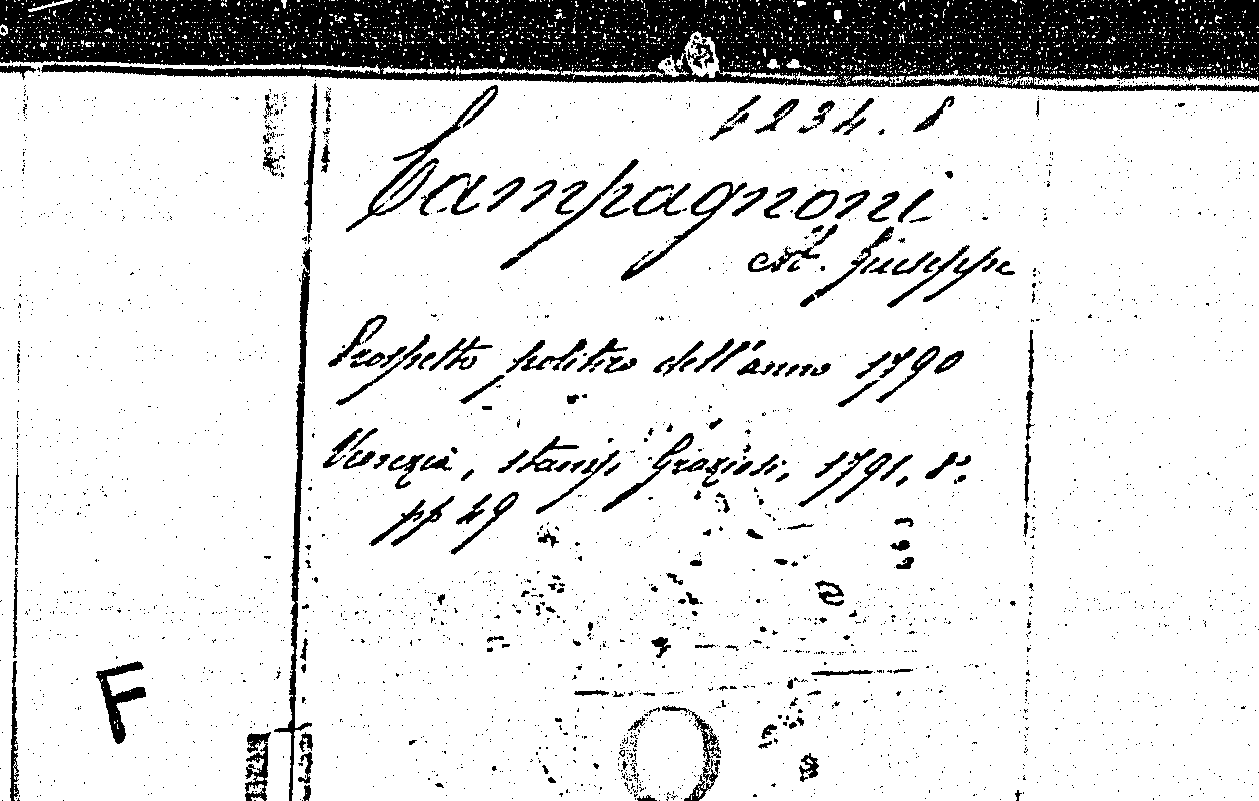 4234.8
Campagnoni
Ab. Giuseppe
Prospetto politico dell'anno 1790
Venezia, stamp. Graziosi, 1791, 8°.
pp 49
F